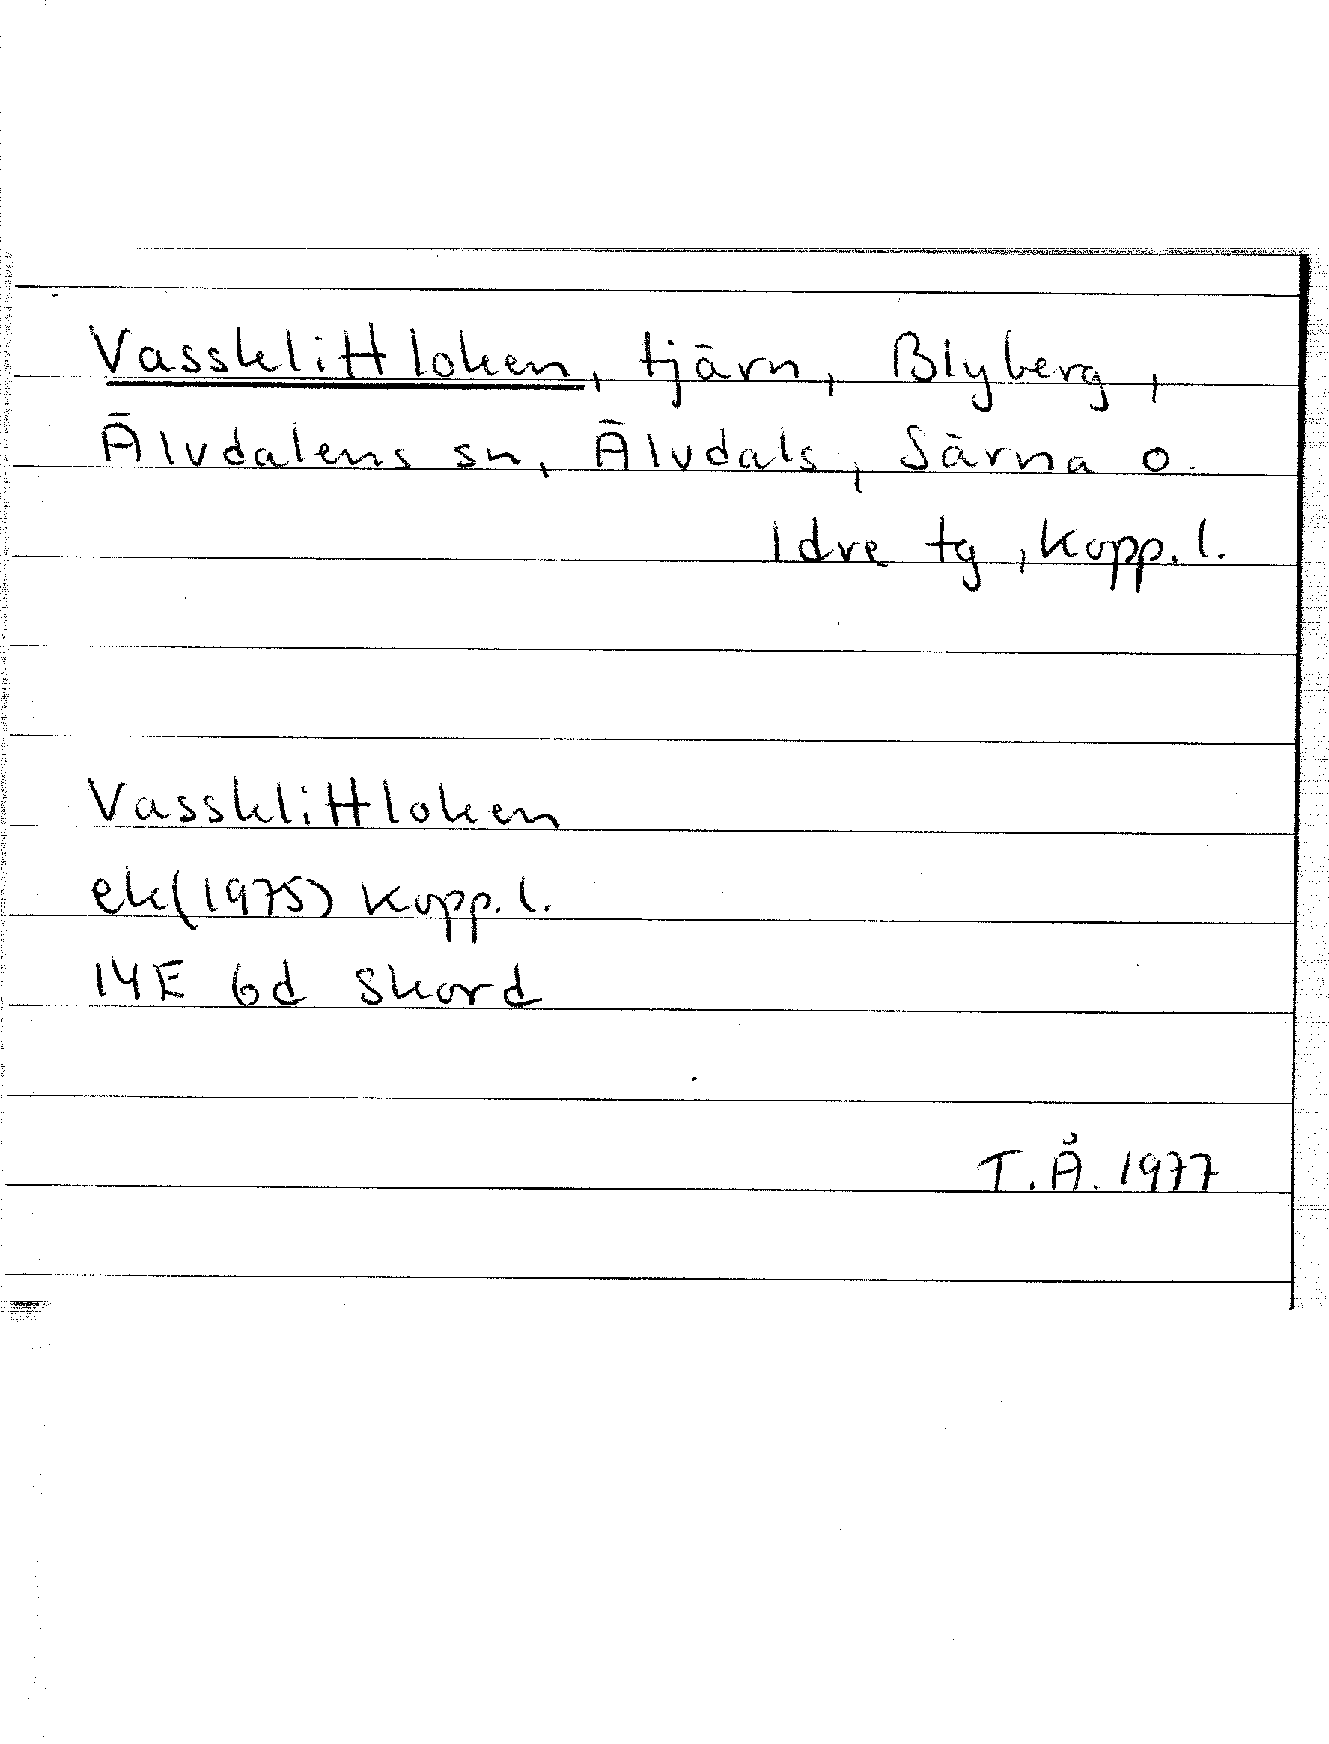 Vassklittloken, tjärn, Blyberg,
Älvdalens sn, Älvdals, Särna o.
Idre tg, Kopp. l.
Vassklittloken
ek(1975) Kopp. l.
14E 6d Skord
T.Å. 1977